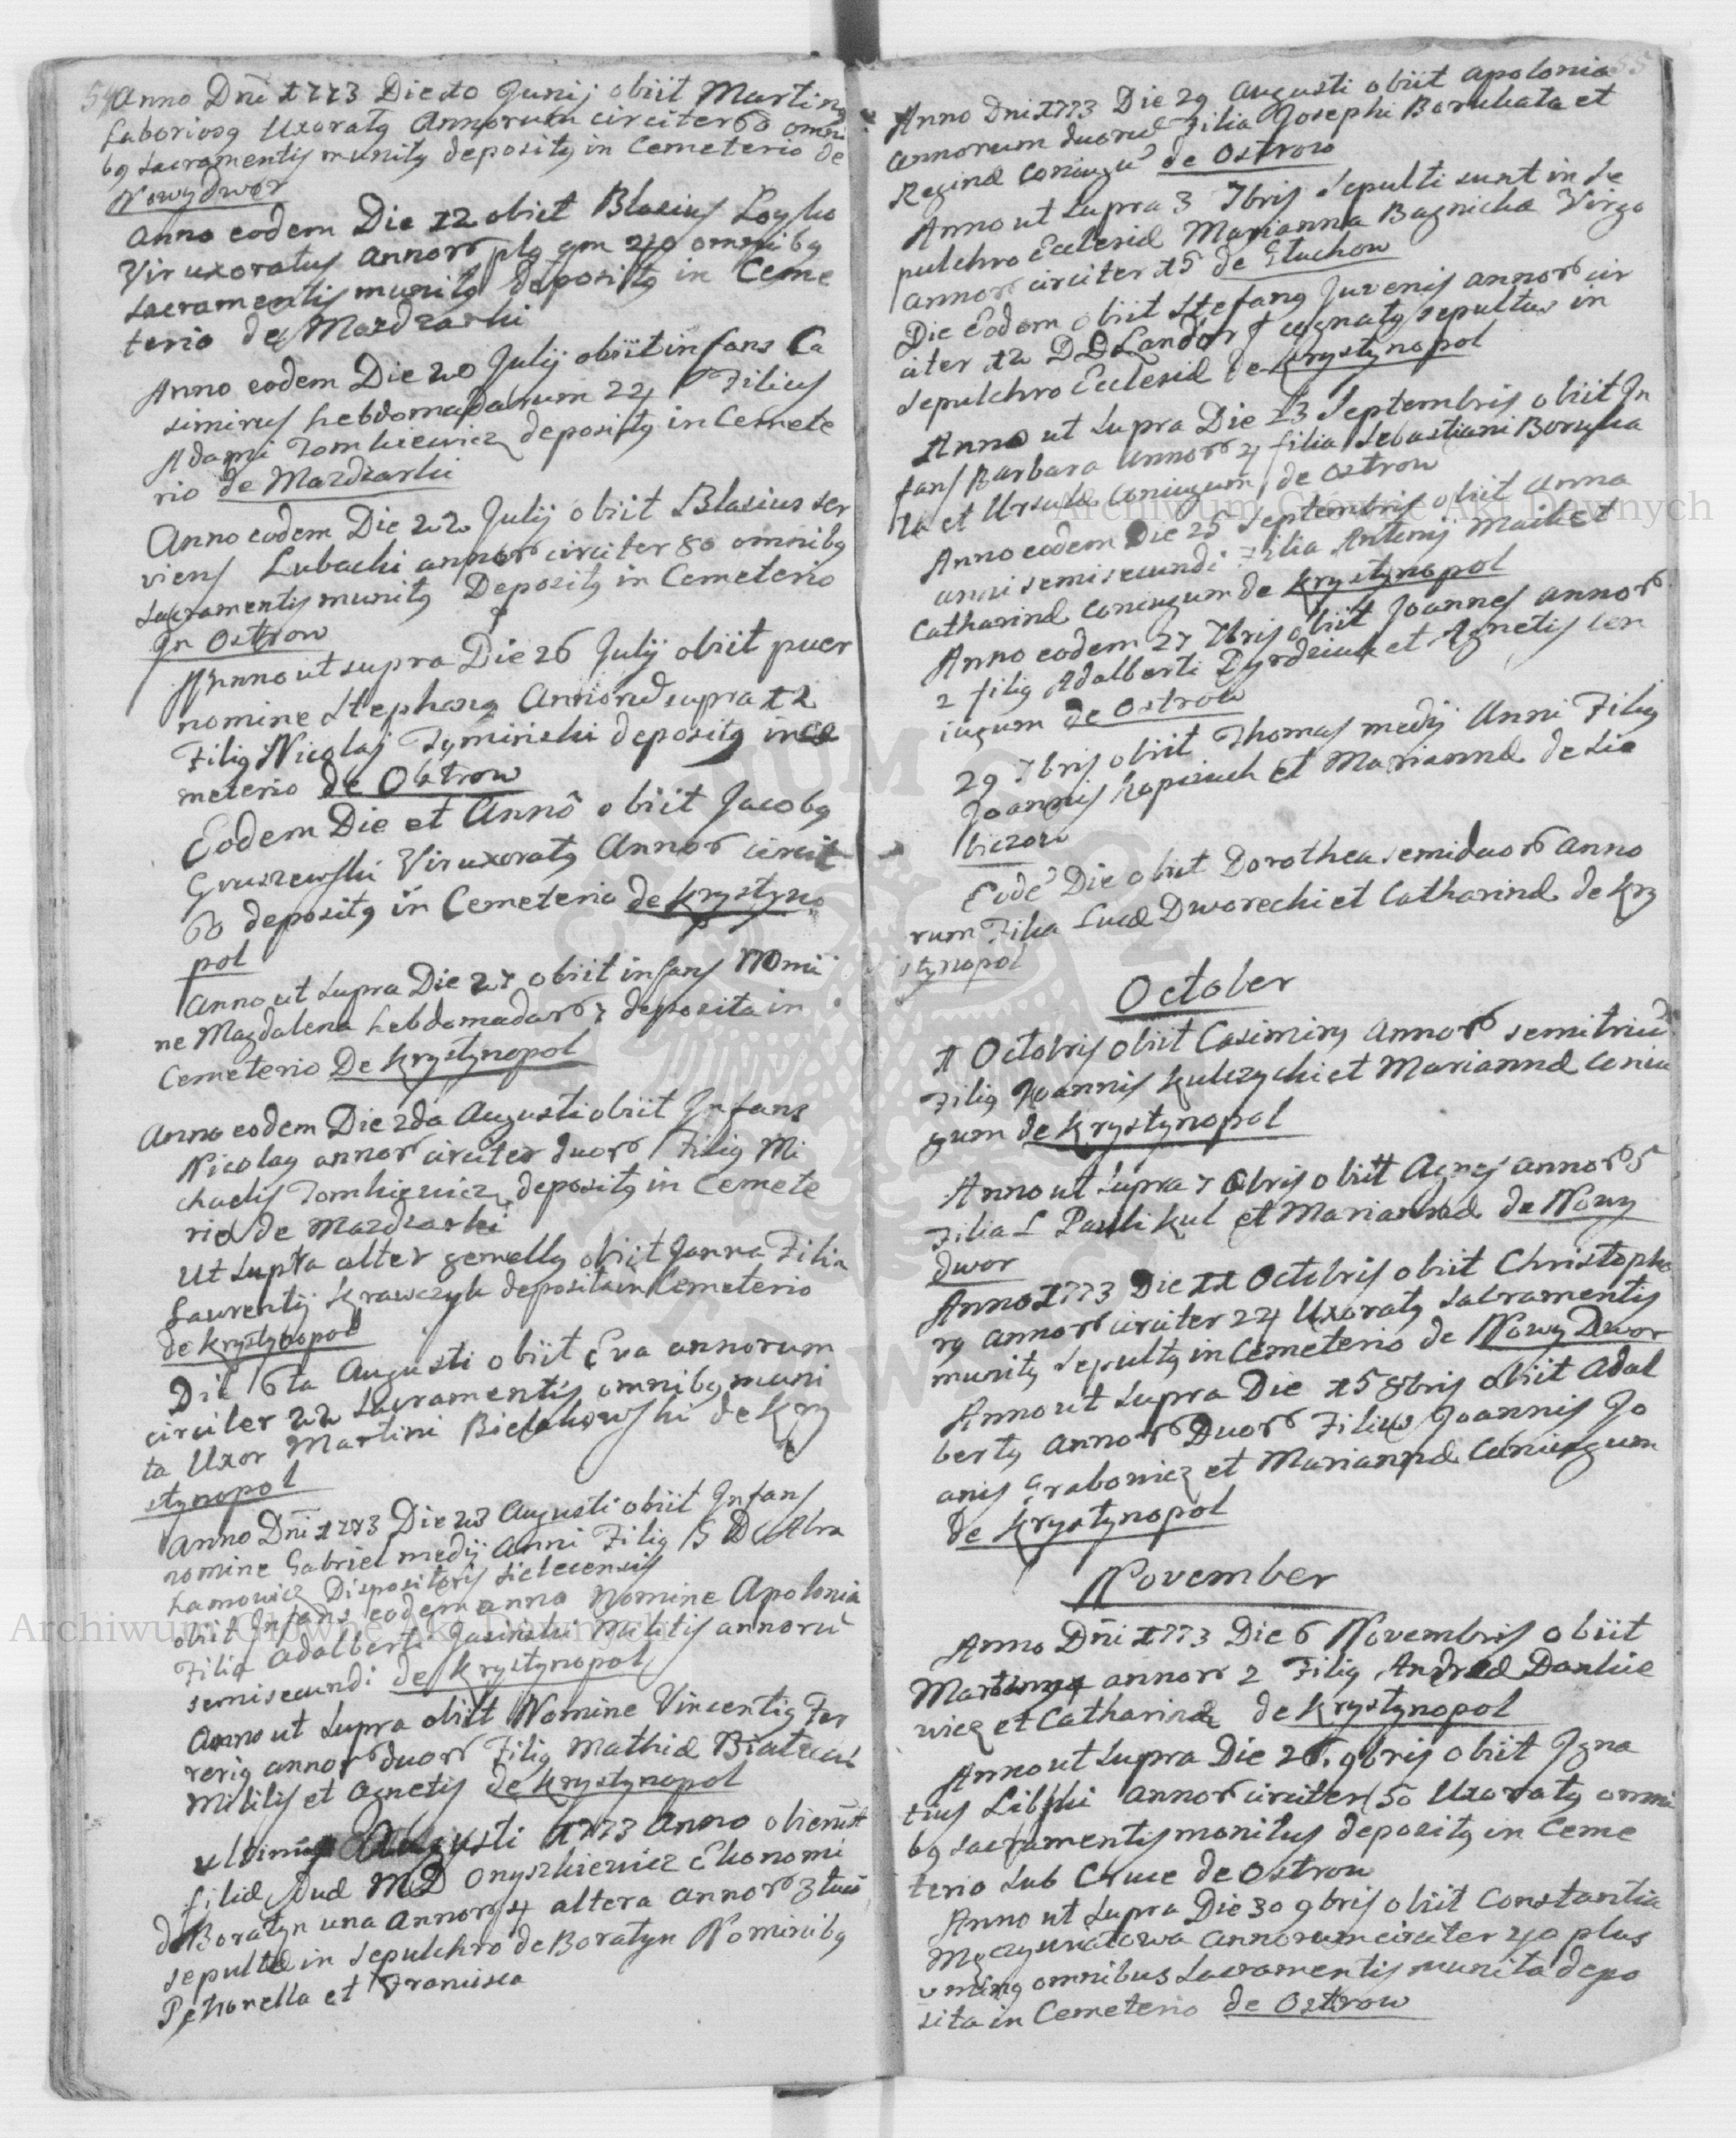 54
Anno Dni 1773 Die 10 Junij obiit Martinq
Laboriosq Uxoratq Annorum circiter 60 omni
bq sacramentis munitq depositq in Cemeterio de
Nowydwor
Anno eodem Die 12 obiit Blasius
Vir uxoratus annorr plq qm 40 omnibq
sacramentis munitq depositq in Ceme
terio de Mazdzarki
Anno eodem Die 20 Julij obiit infans Ca
simirus hebdomadarum 24 Filius
Adami Tomkiewicz depositq in Cemete
rio de Mazdzarki
Anno eodem Die 22 Julij obiit Blasius ser
viens Lubachi annor circiter 80 omnibq
sacramentis munitq Depositq in Cemeterio
In Ostrow
Anno ut supra Die 26 Julij obiit puer
nomine Stephanq Annorū supra 12
Filiq Nicolaj Tyminski depositq in Ce
meterio de Ostrow
Eodem Die et Anno obiit Jacobq
Gruszewski Vir uxoratq Annor circit
60 depositq in Cemeterio de Krystyno
pol
Anno ut supra Die 27 obiit infans Nomi
ne Magdalena hebdomadarr 7 deposita in
Cemeterio De Krystynopol
Anno eodem Die 2da Augusti obiit Infans
Nicolaq annor circiter duorr Filiq Mi
chaelis Tomkiewicz depositq in Cemete
rio de Mazdzarki
Ut supra alter gemellq obiit Janna Filia
Laurentij Krawczyk deposita in Cemeterio
de Krystynopol
Die 6ta Augusti obiit Eva annorum
circiter 22 sacramentis omnibq muni
ta Uxor Martini Bielakowski de Kry
stynopol
Anno Dni 1773 Die 23 Augusti obiit Infans
nomine Gabriel medij Anni Filiq G D Abra
hamowicz Dispositoris Sielecensis
obiit Infans eodem anno Nomine Apolonia
Filia Adalberti Jasinski Militis annorū
semisecundi de Krystynopol
Anno ut supra obiit Nomine Vincentiq Fer
reriq annorr duorr Filiq Mathiæ
Militis et Agnetis de Krystynopol
ultima Augusti 1773 Anno obierūt
filiæ duæ MD Onyszkiewicz Ekonomi
de Boratyn una Annorr 4 altera annorr 3
sepultæ in sepulchro de Boratyn Nominibq
Petronella et Francisca
55
Anno Dni 1773 Die 29 Augusti obiit Apolonia
annorum duorū Filia Josephi Boruhata et
Reginæ Coniugū de Ostrow
Anno ut supra 3 7bris sepulti sunt in se
pulchro Ecclesiæ Marianna Bagnicka Virgo
annorr circiter 15 de Głuchow
Die Eodem obiit Stefanq Juvenis annorr cir
citer 12 D D cognatq sepultus in
sepulchro Ecclesiæ de Krystynopol
Anno ut supra Die 23 Septembris obiit In
fans Barbara annorr 4 filia Sebastiani Boruha
ta et Ursulæ Coniugum de Ostrow
Anno eodem Die 25 Septembris obiit Anna
anni semisecundi Filia Antonij Maik et
Catharinæ Coniugum de Krystynopol
Anno eodem 27 7bris obiit Joannes annorr
2 filiq Adalberti Dyrdziuk et Agnetis Con
iugum de Ostrow
29 7bris obiit Thomas medij Anni Filiq
Joannis Kapisuch et Mariannæ de Sie
biezow
Eodē Die obiit Dorothea semiduorr Anno
rum Filia Lucæ Dworecki et Catharinæ de Kry
stynopol
October
1 Octobris obiit Casimirq Annorr semitriū
Filiq Joannis Kulczycki et Mariannæ Coniu
gum de Krystynopol
Anno ut supra 7 8bris obiit Agnes annorr 5
Filia L Pauli Kul et Mariannæ de Nowy
dwor
Anno 1773 Die 11 Octobris obiit Christopho
rq annorr circiter 24 Uxoratq sacramentis
munitq sepultq in Cemeterio de Nowy Dwor
Anno ut supra Die 15 8bris obiit Adal
bertq annorr Duorr Filius Joannis Jo
anis Grabowicz et Mariannæ Coniugum
de Krystynopol
November
Anno Dni 1773 Die 6 Novembris obiit
Martinq annorr 2 Filiq Andreæ Dankie
wicz et Catharinæ de Krystynopol
Anno ut supra Die 26. 9bris obiit Igna
tius Libski annorr circiter 50 Uxoratq omni
bq sacramentis monitus depositq in Ceme
terio sub Cruce de Ostrow
Anno ut supra Die 30 9bris obiit Constantia
Męczynatowa annorum circiter 40 plus
vminq omnibus sacramentis munita depo
sita in Cemeterio de Ostrow
Archiwum Główne Akt Dawnych
Archiwum Główne Akt Dawnych